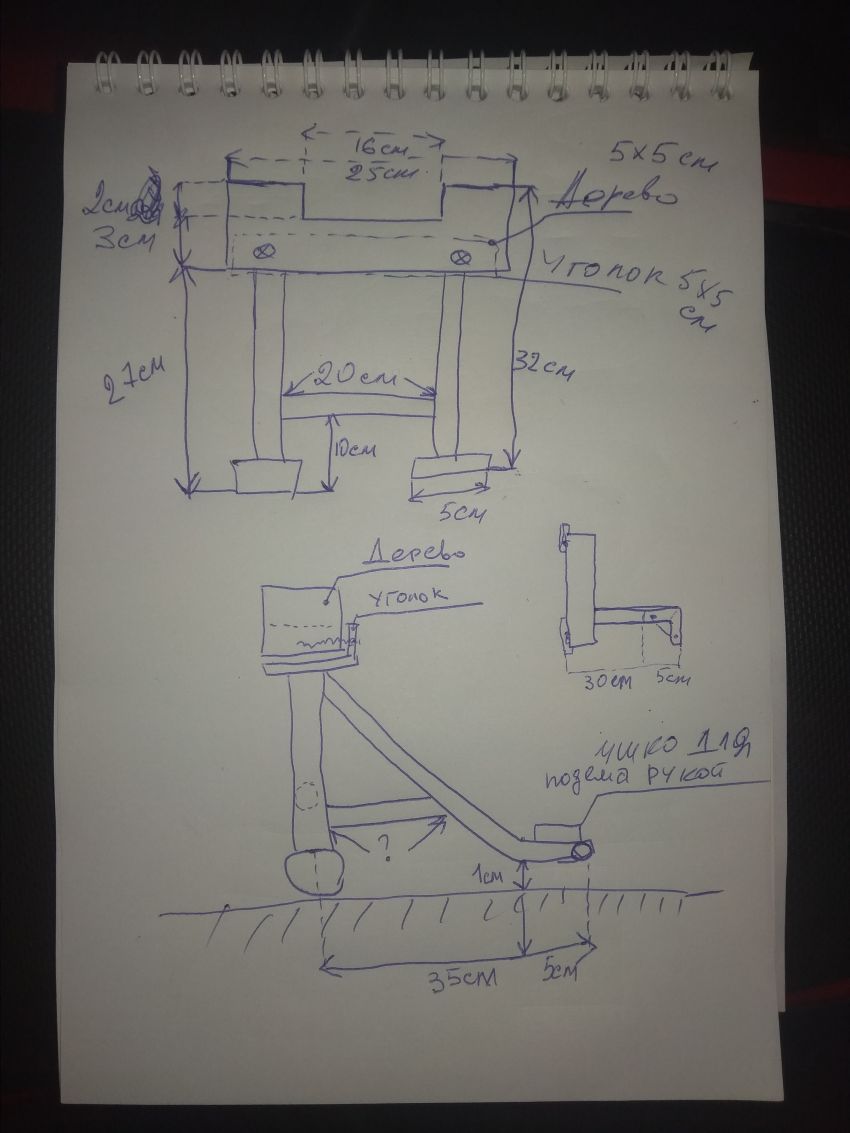 16см
25см
5×5см
Дерево
2см
3см
Уголок 5×5
см
27см
20см
32см
10см
5см
Дерево
Уголок
30см 5см
ушко для
подема рукой
?
1см
35см 5см